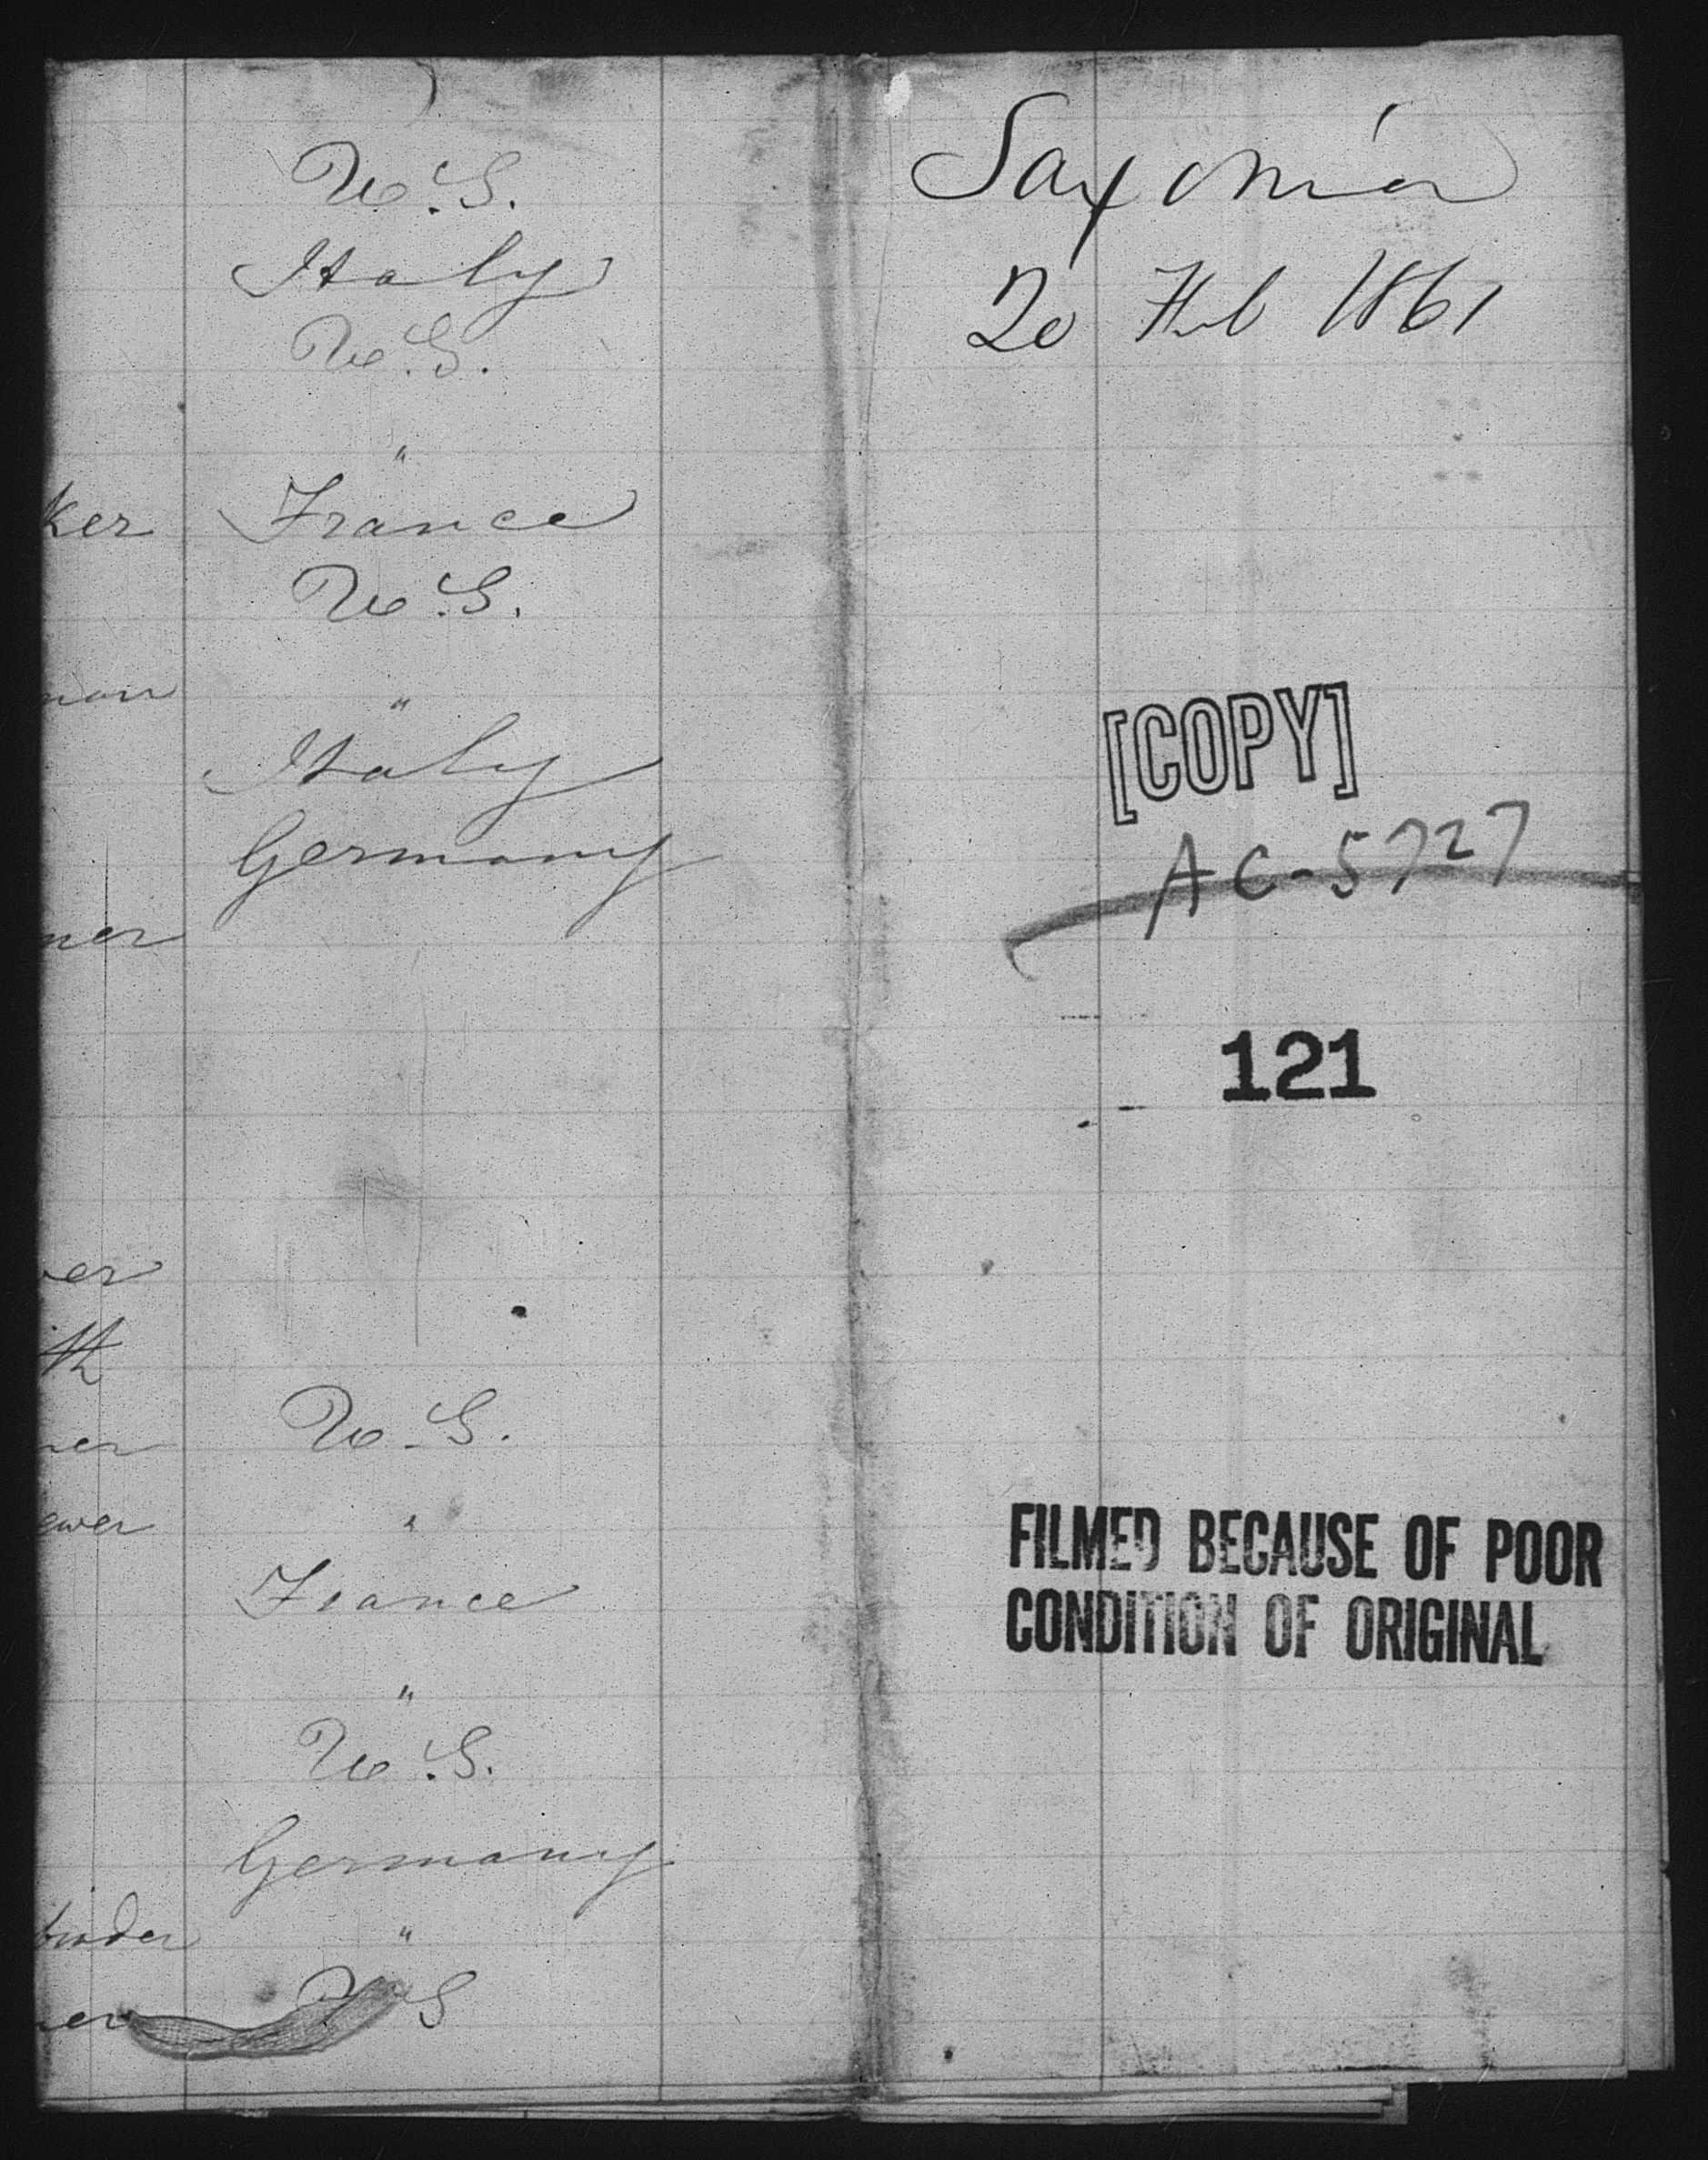 U.S.
Italy
U.S.
"
ker France
U.S.
man "
Italy
Germany
ner
er
th
U.S.
ner
ewer "
France
"
U.S.
Germany
binder "
U S
Saxonia
20 Feb 1861
[COPY]
AC-5727
121
FILMED BECAUSE OF POOR
CONDITION OF ORIGINAL